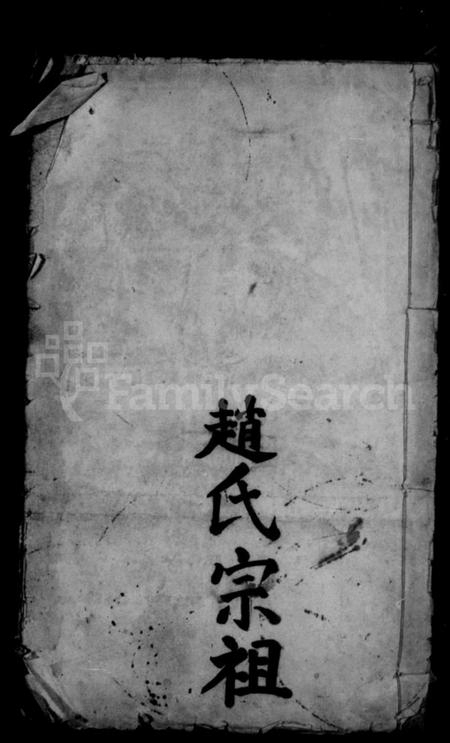 FamilySearch
趙氏宗祖